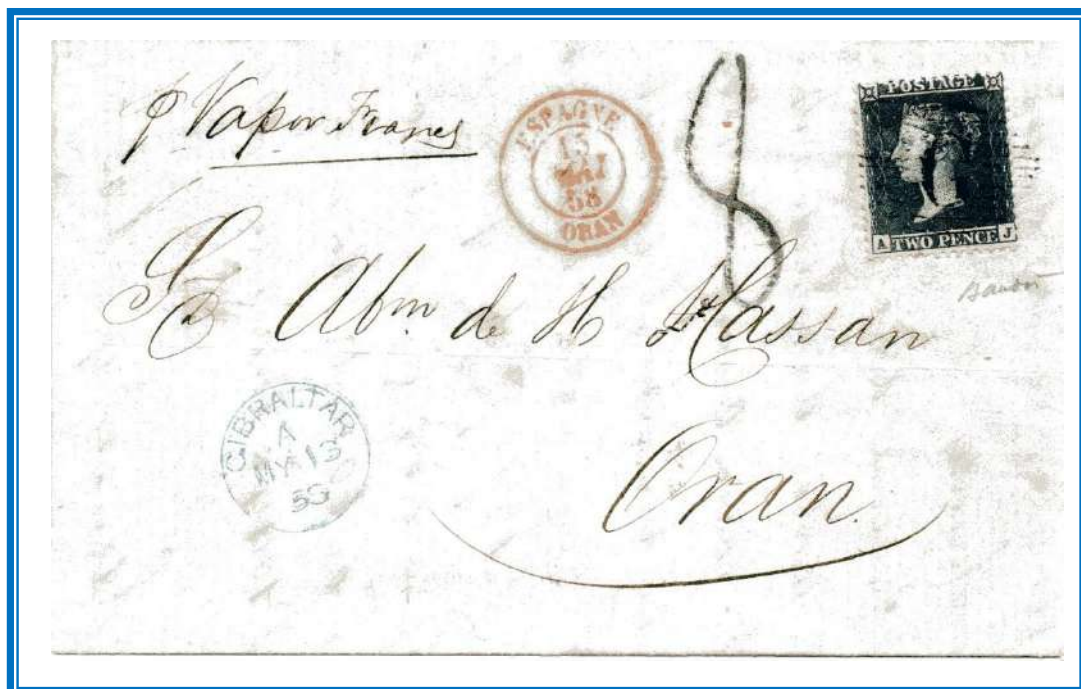 p Vapor Frances
ESPAGNE
15
MAI
58
ORAN
8
POSTAGE
A TWO PENCE J
Abm de H Hassan
GIBRALTAR
A
MY 13
Oran.